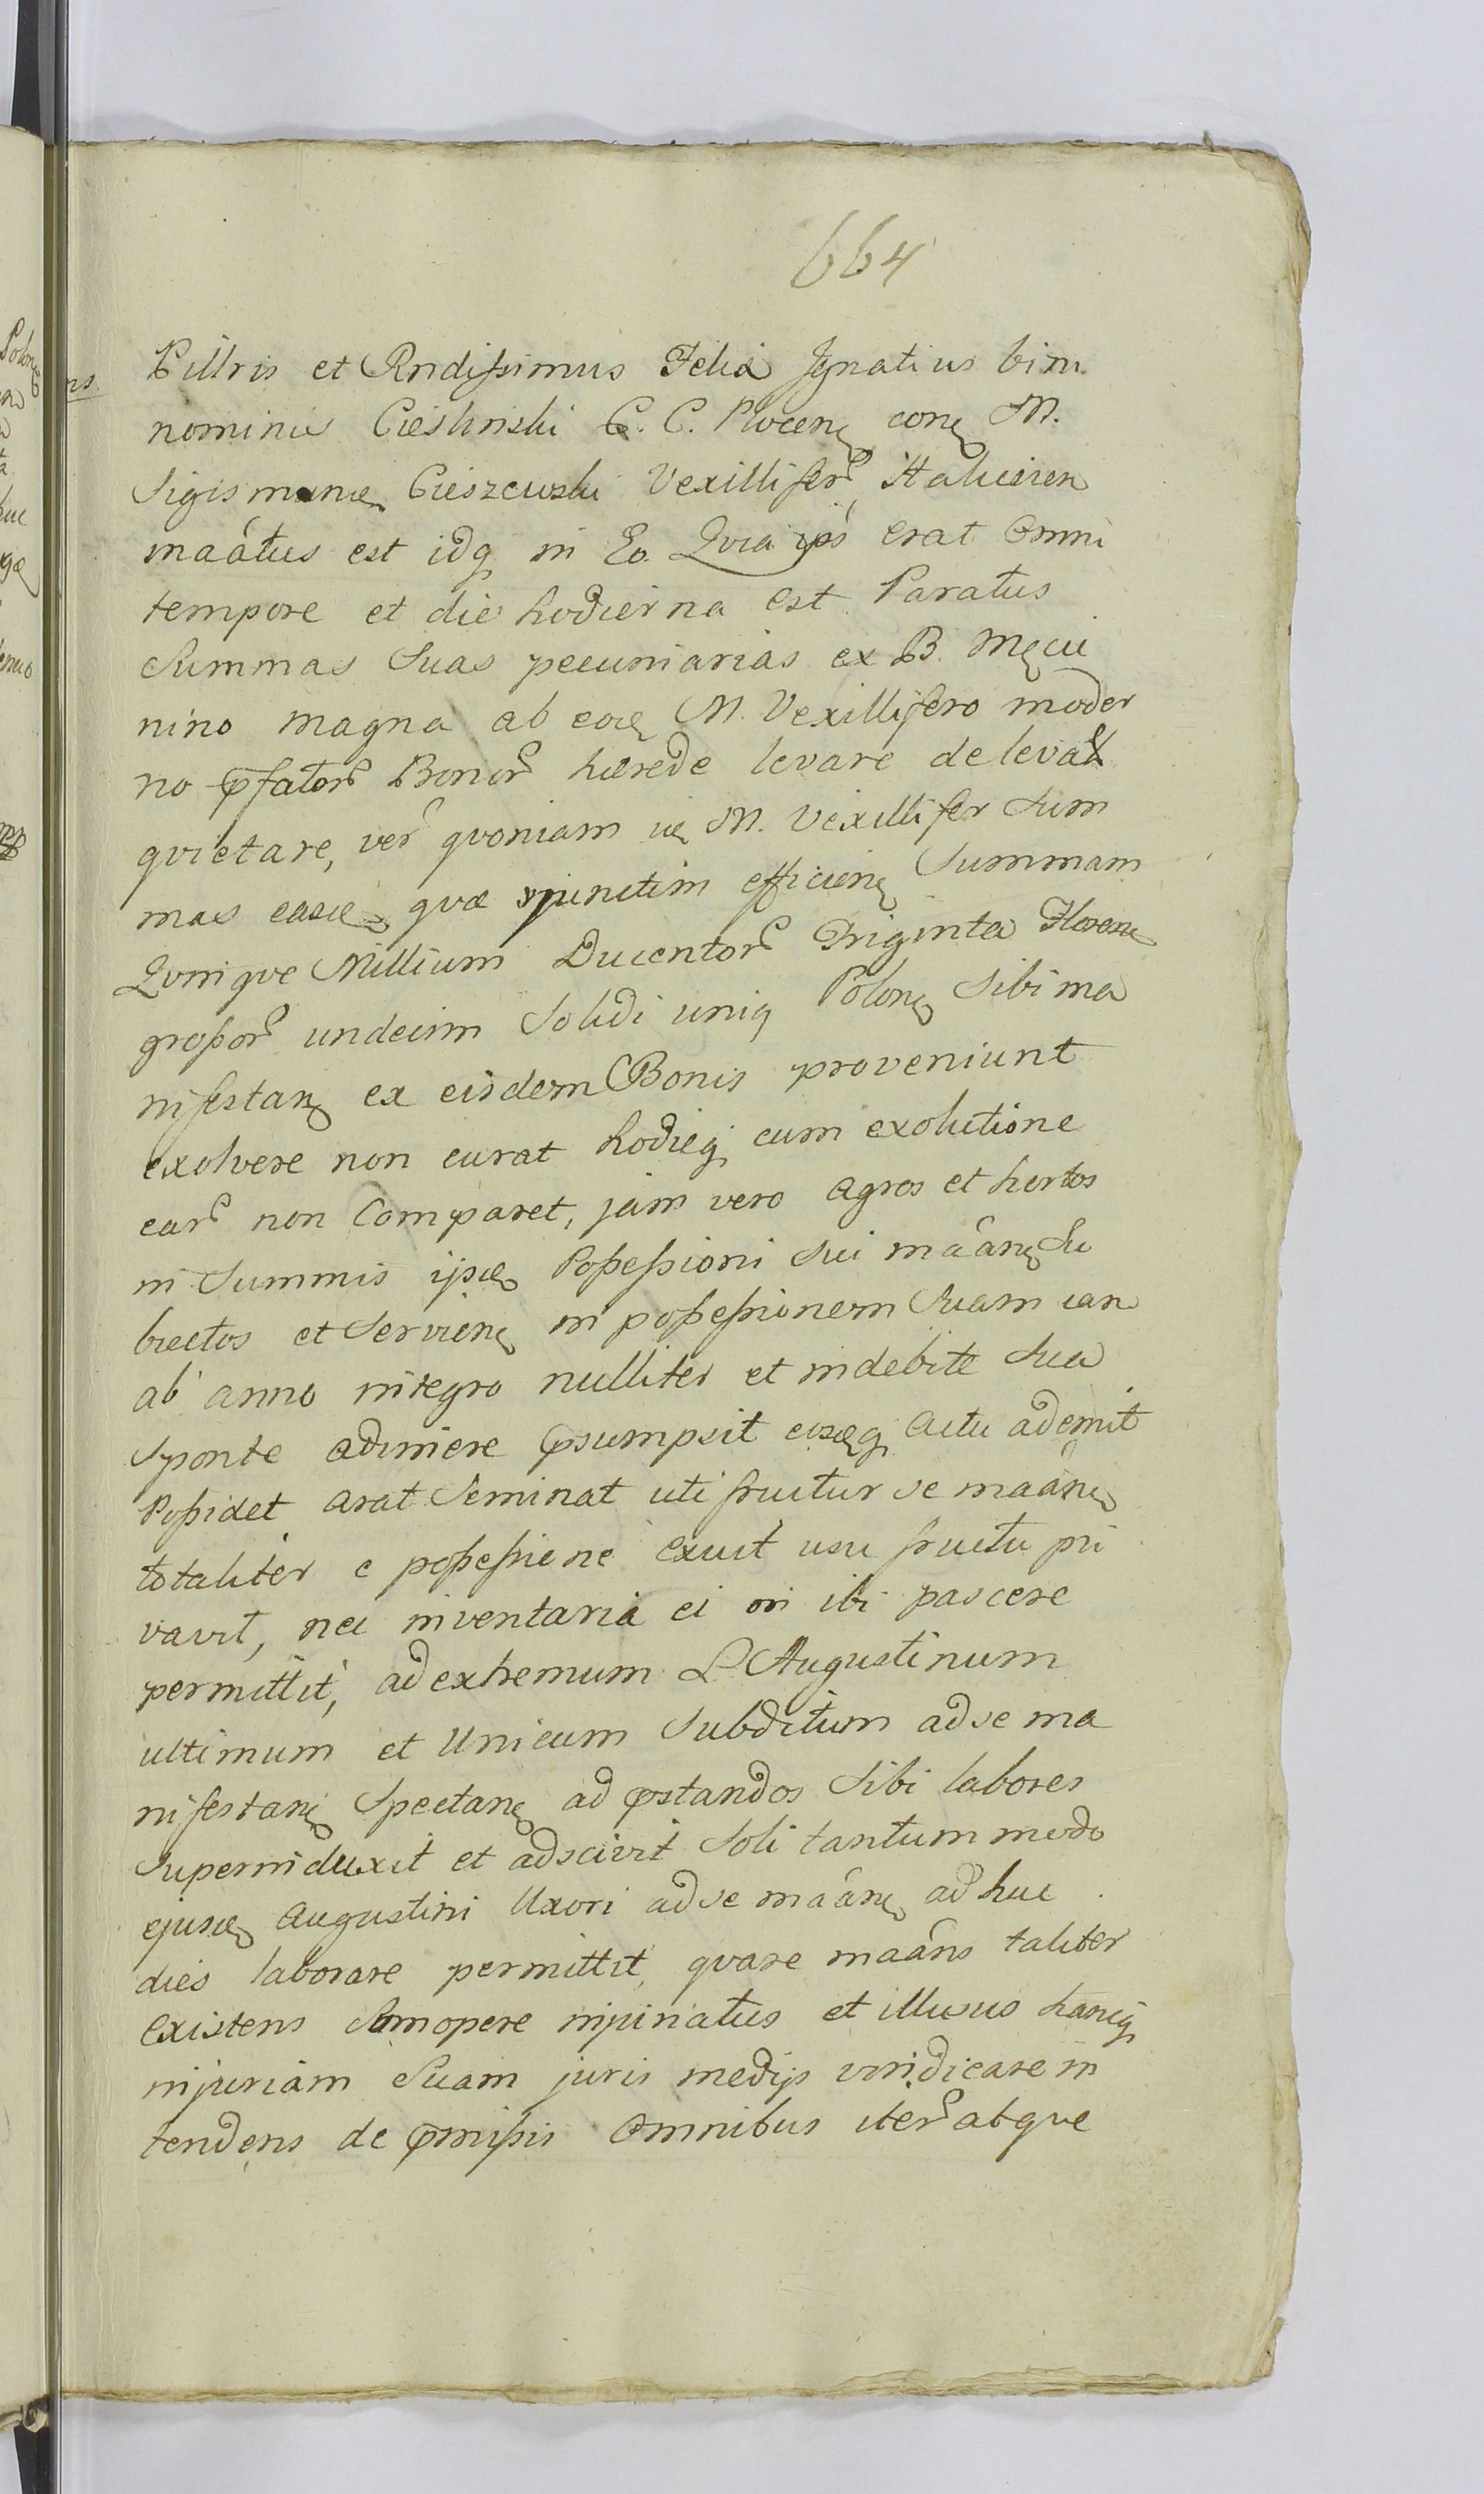 664
Pillris et Rndissimus Felix Ignatius bini
nominis Cieśliński C. C. Plocen con M.
Sigismun Cieszewski Vexillifer Halicien
maatus est idq in Eo. Qvia ips erat omni
tempore et die hodierna est Paratus
Summas Suas pecuniarias ex B. Męci
nino magna ab eod M. Vexillifero moder
no pfator Bonor hærede levare de leva
qvietare, ver qvoniam id M. Vexillifer Sum
mas easd qvæ cjunctim efficien Summam
Qvinqve Millium Ducentor Triginta Floren
grossor undecim Solidi uniq Polon Sibi ma
nifestan ex eisdem Bonis proveniunt
exolvere non curat hodieq cum exolutione
ear non Comparet, jam vero agros et hortos
in Summis ijsd Possessioni Sui maan Su
biectos et Servien in possessionem Suam ian
ab anno integro nulliter et indebite Sua
Sponte adimere psumpsit eosdq actu ademit
Possidet arat Seminat uti fruitur se maan
totaliter e possessione exuit usu fructu pri
vavit, nec inventaria ei in ibi pascere
permittit, ad extremum L. Augustinum
ultimum et Unicum Subditum ad se ma
nifestan Spectan ad pstandos Sibi labores
Superinduxit et adscivit Soli tantummodo
ejusd Augustini Uxori ad se maan ad huc
dies laborare permittit, qvare maans taliter
existens Smopere injuriatus et illusus hancq
injuriam Suam juris medijs vindicare in
tendens de pmissis omnibus iter atqve